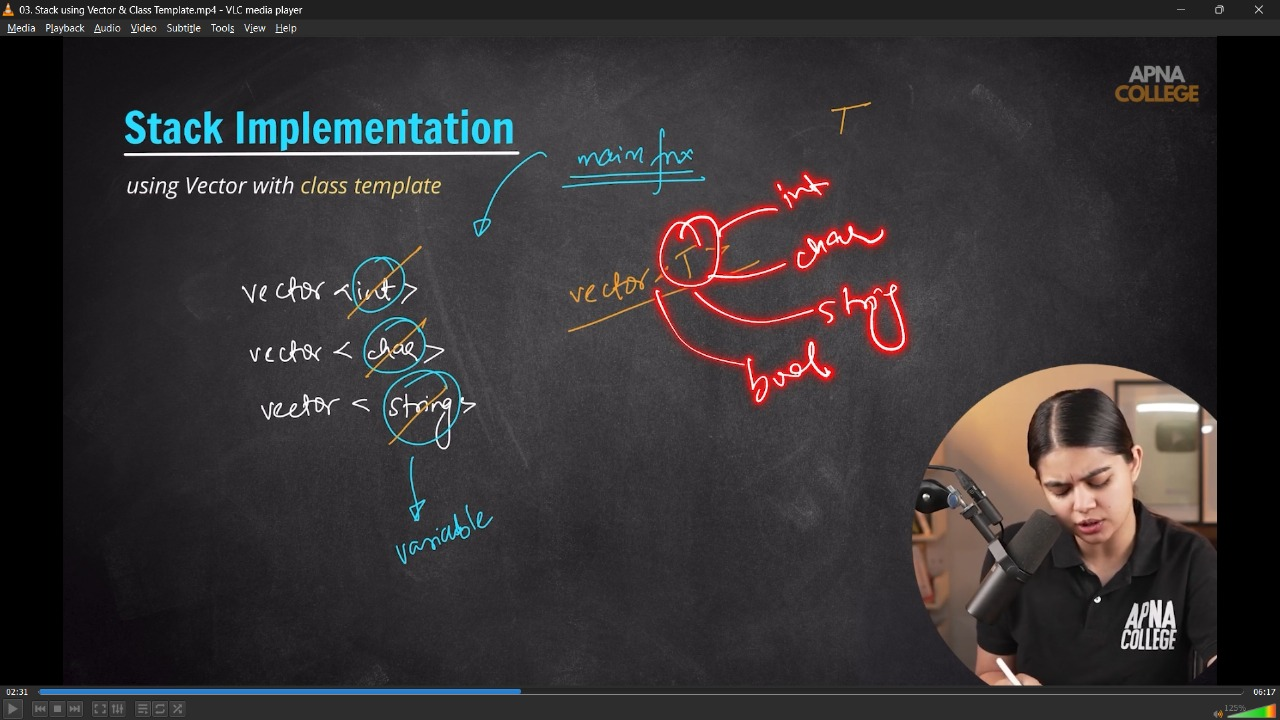 03. Stack using Vector & Class Template.mp4 - VLC media player
Media Playback Audio Video Subtitle Tools View Help
APNA
COLLEGE
T
Stack Implementation
main fnx
using Vector with class template
int
char
vector <int>
vector <T>
string
vector < char >
bool
vector < string >
variable
APNA
COLLEGE
02:31
06:17
125%